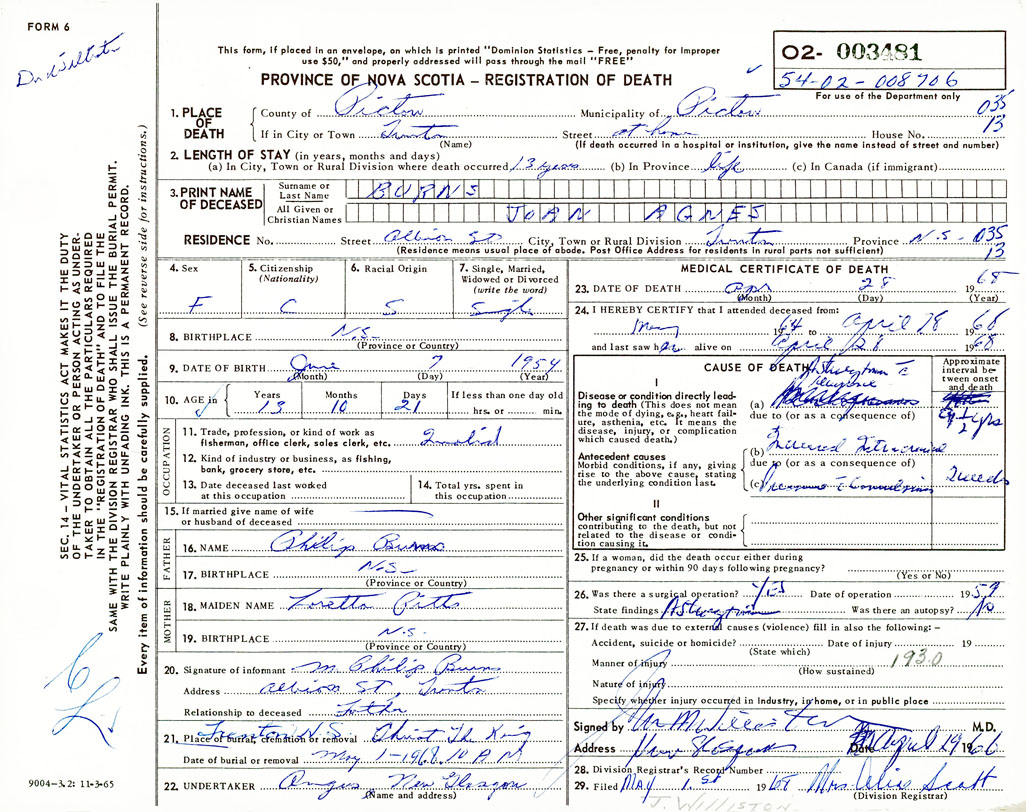 FORM 6
This form, if placed in an envelope, on which is printed "Dominion Statistics – Free, penalty for improper
use $50," and properly addressed will pass through the mail "FREE"
PROVINCE OF NOVA SCOTIA – REGISTRATION OF DEATH
02- 003481
54-02-008706
For use of the Department only
1. PLACE OF DEATH
County of Pictou Municipality of Pictou 035
If in City or Town Trenton Street at home House No. 13
(Name) (If death occurred in a hospital or institution, give the name instead of street and number)
2. LENGTH OF STAY (in years, months and days)
(a) In City, Town or Rural Division where death occurred 13 years (b) In Province life (c) In Canada (if immigrant)
3. PRINT NAME OF DECEASED
Surname or Last Name BURNS
All Given or Christian Names JOAN AGNES
RESIDENCE No. Street Albion St City, Town or Rural Division Trenton Province N.S - 035
13
(Residence means usual place of abode. Post Office Address for residents in rural parts not sufficient)
4. Sex F
5. Citizenship (Nationality) C
6. Racial Origin S
7. Single, Married, Widowed or Divorced (write the word) Single
8. BIRTHPLACE N.S.
(Province or Country)
9. DATE OF BIRTH June 7 1954
(Month) (Day) (Year)
10. AGE in Years 13 Months 10 Days 21 If less than one day old hrs. or min.
OCCUPATION
11. Trade, profession, or kind of work as
fisherman, office clerk, sales clerk, etc. Invalid
12. Kind of industry or business, as fishing,
bank, grocery store, etc.
13. Date deceased last worked
at this occupation
14. Total yrs. spent in
this occupation
15. If married give name of wife
or husband of deceased
FATHER
16. NAME Philip Burns
17. BIRTHPLACE N.S.
(Province or Country)
MOTHER
18. MAIDEN NAME Loretta Pitts
19. BIRTHPLACE N.S.
(Province or Country)
20. Signature of informant M. Philip Burns
Address Albion St, Trenton
Relationship to deceased Father
21. Place of burial, cremation or removal Trenton N.S. Christ The King
Date of burial or removal May 1-1968
22. UNDERTAKER Angus New Glasgow
(Name and address)
MEDICAL CERTIFICATE OF DEATH
23. DATE OF DEATH Apr 28 1968
(Month) (Day) (Year)
24. I HEREBY CERTIFY that I attended deceased from:
May 1964 to April 28 1968
and last saw her alive on April 28 1968
CAUSE OF DEATH
Approximate interval between onset and death
I
Disease or condition directly leading to death (This does not
mean the mode of dying, e.g., heart failure, asthenia, etc. It means the
disease, injury, or complication
which caused death.)
(a)
due to (or as a consequence of)
Antecedent causes
Morbid conditions, if any, giving
rise to the above cause, stating
the underlying condition last.
(b)
due to (or as a consequence of)
(c)
II
Other significant conditions
contributing to the death, but not
related to the disease or condition causing it.
25. If a woman, did the death occur either during
pregnancy or within 90 days following pregnancy?
(Yes or No)
26. Was there a surgical operation? YES Date of operation 1959
State findings Was there an autopsy? No
27. If death was due to external causes (violence) fill in also the following: –
Accident, suicide or homicide? Date of injury 19
(State which)
Manner of injury 1930
(How sustained)
Nature of injury
Specify whether injury occurred in industry, in home, or in public place
Signed by M.D.
Address Date April 29 1968
28. Division Registrar's Record Number
29. Filed MAY 1.st 1968 Mrs. Alice Scott
(Division Registrar)
J. WILLISTON
SEC. 14 – VITAL STATISTICS ACT MAKES IT THE DUTY
OF THE UNDERTAKER OR PERSON ACTING AS UNDERTAKER
TO OBTAIN ALL THE PARTICULARS REQUIRED
IN THE "REGISTRATION OF DEATH" AND TO FILE THE
SAME WITH THE DIVISION REGISTRAR WHO SHALL ISSUE THE BURIAL PERMIT.
WRITE PLAINLY WITH UNFADING INK. THIS IS A PERMANENT RECORD.
Every item of information should be carefully supplied. (See reverse side for instructions.)
9004-3.2: 11-3-65